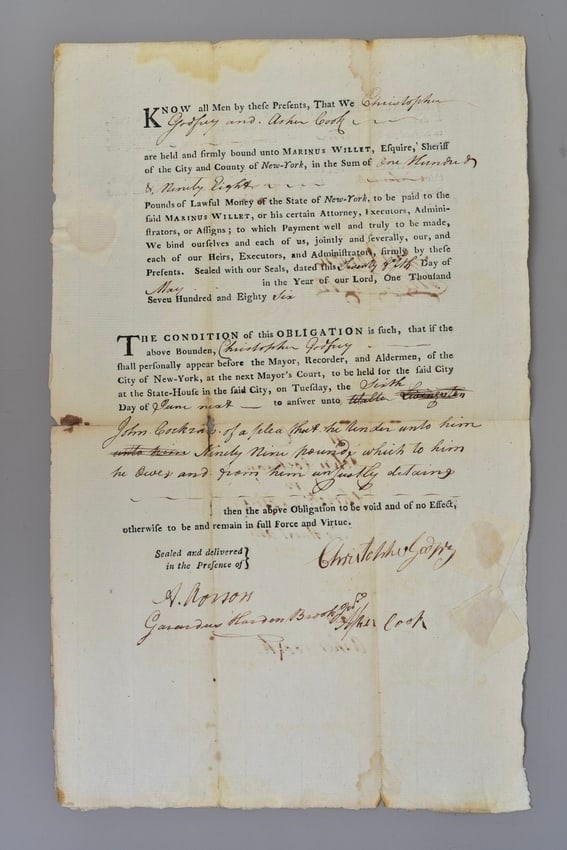 KNOW all Men by theſe Preſents, That We Christopher
Godfrey and Asher Cook
are held and firmly bound unto MARINUS WILLET, Eſquire, Sheriff
of the City and County of New-York, in the Sum of One Hundred
& Ninety Eight
Pounds of Lawful Money of the State of New-York, to be paid to the
ſaid MARINUS WILLET, or his certain Attorney, Executors, Admini-
ſtrators, or Aſſigns; to which Payment well and truly to be made,
We bind ourſelves and each of us, jointly and ſeverally, our, and
each of our Heirs, Executors, and Adminiſtrators, firmly by theſe
Preſents. Sealed with our Seals, dated this Day of
May in the Year of our Lord, One Thouſand
Seven Hundred and Eighty Six
THE CONDITION of this OBLIGATION is ſuch, that if the
above Bounden, Christopher Godfrey
ſhall perſonally appear before the Mayor, Recorder, and Aldermen, of the
City of New-York, at the next Mayor's Court, to be held for the ſaid City
at the State-House in the ſaid City, on Tueſday, the Sixth
Day of June next to anſwer unto
John Cockran of a plea that he render unto him
unto him Ninety Nine pounds which to him
he Owes and from him unjustly detains
then the above Obligation to be void and of no Effect,
otherwiſe to be and remain in full Force and Virtue.
Sealed and delivered
in the Preſence of
Christopher Godfrey
Garardus Harden Brook Junr
Asher Cook